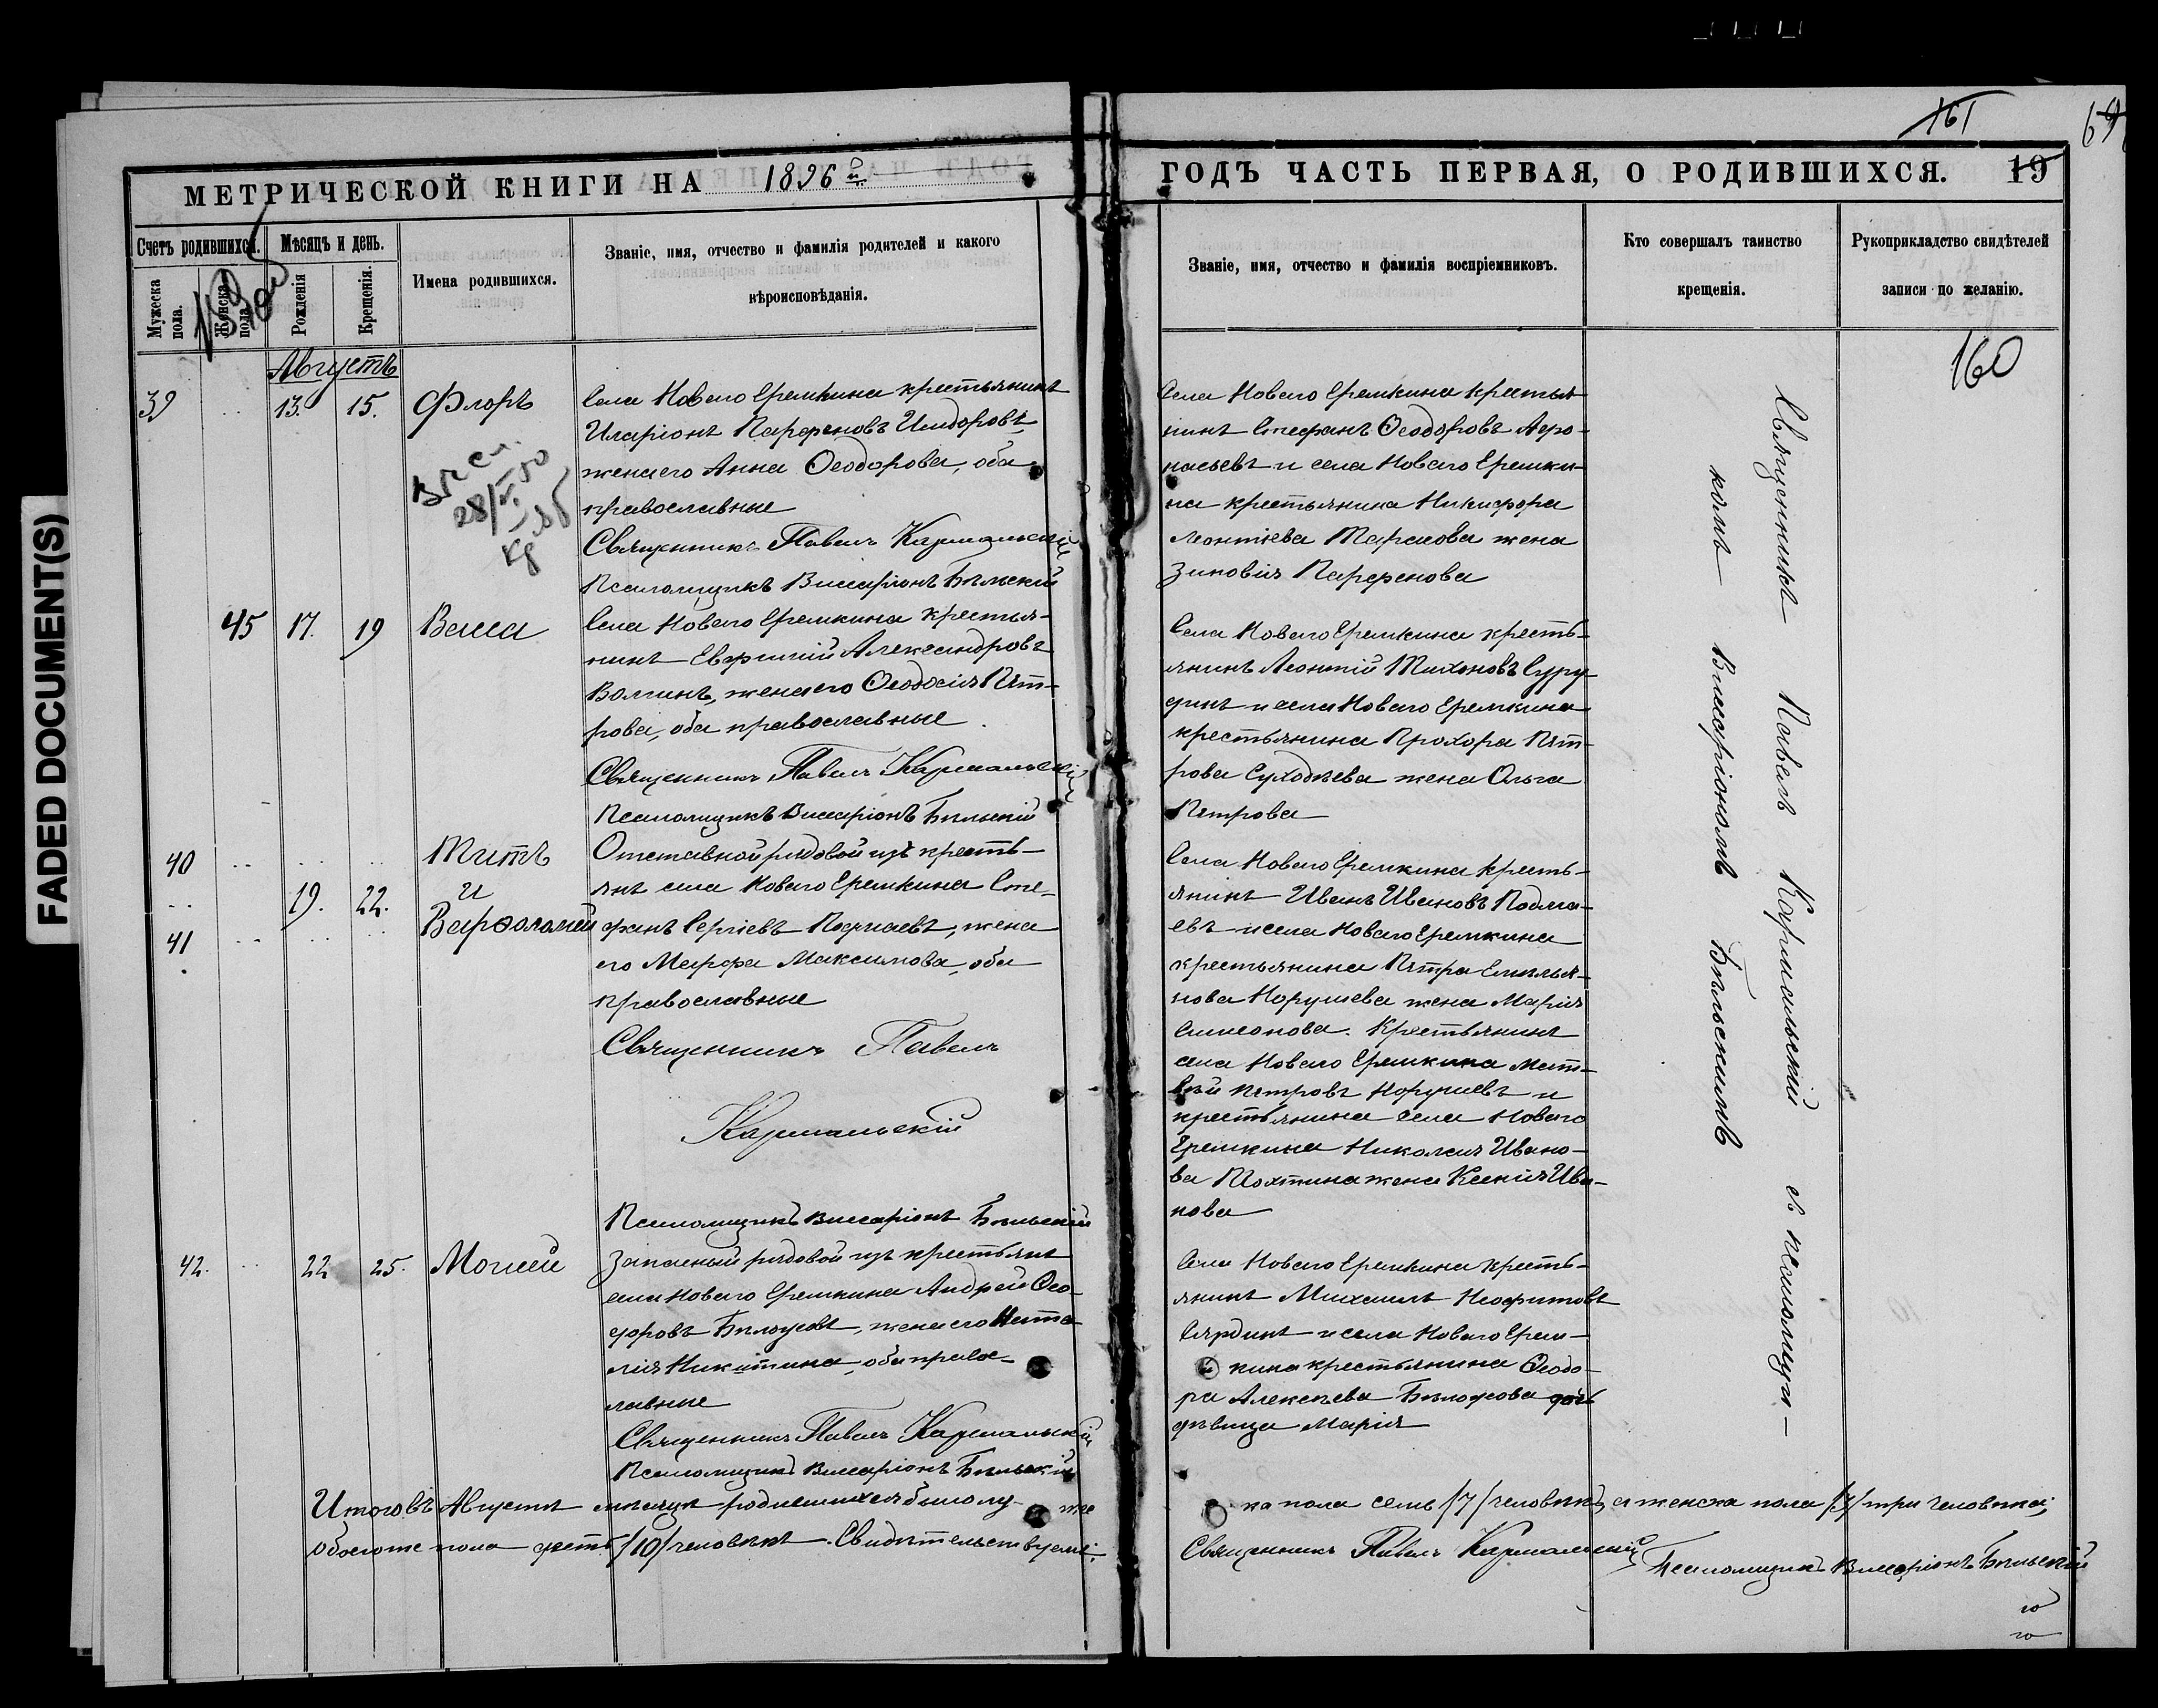 161
69
МЕТРИЧЕСКОЙ КНИГИ НА 1896 й
ГОДЪ ЧАСТЬ ПЕРВАЯ, О РОДИВШИХСЯ. 19
Счетъ родившихся.
Мужеска пола.
Женска пола.
Мѣсяцъ и день.
Рожденія
Крещенія.
Имена родившихся.
Званіе, имя, отчество и фамилія родителей и какого
вѣроисповѣданія.
Званіе, имя, отчество и фамилія воспріемниковъ.
Кто совершалъ таинство
крещенія.
Рукоприкладство свидѣтелей
записи по желанію.
160
Августъ
39 13. 15. Флоръ
Села Новаго Еремкина крестьянинъ
Иларіонъ Парфеновъ Исидоровъ,
жена его Анна Ѳеодорова, оба
православные
Священникъ Павелъ Кармальскій
Псаломщикъ Виссаріонъ Бѣльскій
Села Новаго Еремкина крестья-
нинъ Стефанъ Ѳеодоровъ Аѳо-
насьевъ и села Новаго Еремки-
на крестьянина Никифора
Леонтіева Тарасова жена
Зиновія Парфенова
28/V 50
45 17. 19 Васса
Села Новаго Еремкина крестья-
нинъ Евфимій Александровъ
Волгинъ, жена его Ѳеодосія Пет-
рова, оба православные
Священникъ Павелъ Кармальскій
Псаломщикъ Виссаріонъ Бѣльскій
Села Новаго Еремкина кресть-
янинъ Леонтій Тихоновъ
и села Новаго Еремкина
крестьянина Прохора Пет-
рова жена Ольга
Петрова
40 Титъ
и
19. 22.
41 Варѳоломей
Отставной рядовой изъ кресть-
янъ села Новаго Еремкина Сте-
фанъ Сергіевъ жена
его Марфа Максимова, оба
православные
Священникъ Павелъ
Кармальскій
Псаломщикъ Виссаріонъ Бѣльскій
Села Новаго Еремкина кресть-
янинъ Иванъ Ивановъ Подма-
евъ и села Новаго Еремкина
крестьянина Петра Емилья-
нова Норушева жена Марія
Симеонова. Крестьянинъ
села Новаго Еремкина Мат-
вѣй Петровъ Норушевъ и
крестьянина села Новаго
Еремкина Николая Ивано-
ва жена Ксенія Ива-
нова
42. 22 25. Моисей
Запасный рядовой изъ крестьянъ
села Новаго Еремкина Андрей Ѳео-
доровъ жена его Ната-
лія Никитина, оба право-
лавные
Священникъ Павелъ Кармальскій
Псаломщикъ Виссаріонъ Бѣльскій
Села Новаго Еремкина кресть-
янинъ Михаилъ Неофитовъ
Сярдинъ и села Новаго Ерем-
кина крестьянина Ѳеодо-
ра Алексѣева дочь
дѣвица Марія
Священникъ Павелъ Кармальскій съ псаломщи-
комъ Виссаріономъ Бѣльскимъ
Итого въ Августѣ мѣсяцѣ родившихся было му- же
ка пола семь /7/ человѣкъ, а женска пола /3/ три человѣка;
обоего же пола десять /10/ человѣкъ. Свидѣтельствуемъ:
Священникъ Павелъ Кармальскій
Псаломщикъ Виссаріонъ Бѣльскій
FADED DOCUMENT(S)